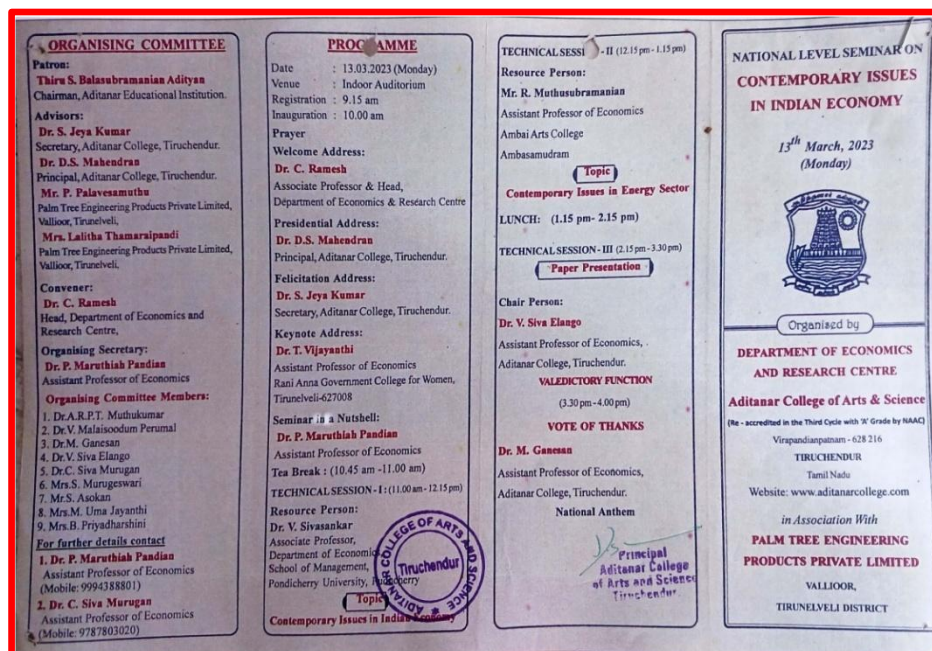 ORGANISING COMMITTEE
Patron:
Thiru S. Balasubramanian Adityan
Chairman, Aditanar Educational Institution.
Advisors:
Dr. S. Jeya Kumar
Secretary, Aditanar College, Tiruchendur.
Dr. D.S. Mahendran
Principal, Aditanar College, Tiruchendur.
Mr. P. Palavesamuthu
Palm Tree Engineering Products Private Limited,
Vallioor, Tirunelveli,
Mrs. Lalitha Thamaraipandi
Palm Tree Engineering Products Private Limited,
Vallioor, Tirunelveli,
Convener:
Dr. C. Ramesh
Head, Department of Economics and
Research Centre,
Organising Secretary:
Dr. P. Maruthiah Pandian
Assistant Professor of Economics
Organising Committee Members:
1. Dr.A.R.P.T. Muthukumar
2. Dr.V. Malaisoodum Perumal
3. Dr.M. Ganesan
4. Dr.V. Siva Elango
5. Dr.C. Siva Murugan
6. Mrs.S. Murugeswari
7. Mr.S. Asokan
8. Mrs.M. Uma Jayanthi
9. Mrs.B. Priyadharshini
For further details contact
1. Dr. P. Maruthiah Pandian
Assistant Professor of Economics
(Mobile: 9994388801)
2. Dr. C. Siva Murugan
Assistant Professor of Economics
(Mobile: 9787803020)
PROGRAMME
Date : 13.03.2023 (Monday)
Venue : Indoor Auditorium
Registration : 9.15 am
Inauguration : 10.00 am
Prayer
Welcome Address:
Dr. C. Ramesh
Associate Professor & Head,
Department of Economics & Research Centre
Presidential Address:
Dr. D.S. Mahendran
Principal, Aditanar College, Tiruchendur.
Felicitation Address:
Dr. S. Jeya Kumar
Secretary, Aditanar College, Tiruchendur.
Keynote Address:
Dr. T. Vijayanthi
Assistant Professor of Economics
Rani Anna Government College for Women,
Tirunelveli-627008
Seminar in a Nutshell:
Dr. P. Maruthiah Pandian
Assistant Professor of Economics
Tea Break : (10.45 am -11.00 am)
TECHNICAL SESSION - I : (11.00 am - 12.15 pm)
Resource Person:
Dr. V. Sivasankar
Associate Professor,
Department of Economic
School of Management,
Pondicherry University, Puducherry
Topic
Contemporary Issues in Indian Economy
ADITANAR COLLEGE OF ARTS AND SCIENCE
Tiruchendur
TECHNICAL SESSI - II (12.15 pm - 1.15 pm)
Resource Person:
Mr. R. Muthusubramanian
Assistant Professor of Economics
Ambai Arts College
Ambasamudram
Topic
Contemporary Issues in Energy Sector
LUNCH: (1.15 pm- 2.15 pm)
TECHNICAL SESSION - III (2.15 pm - 3.30 pm)
Paper Presentation
Chair Person:
Dr. V. Siva Elango
Assistant Professor of Economics,
Aditanar College, Tiruchendur.
VALEDICTORY FUNCTION
(3.30 pm - 4.00 pm)
VOTE OF THANKS
Dr. M. Ganesan
Assistant Professor of Economics,
Aditanar College, Tiruchendur.
National Anthem
Principal
Aditanar College
of Arts and Science
Tiruchendur.
NATIONAL LEVEL SEMINAR ON
CONTEMPORARY ISSUES
IN INDIAN ECONOMY
13th March, 2023
(Monday)
Organised by
DEPARTMENT OF ECONOMICS
AND RESEARCH CENTRE
Aditanar College of Arts & Science
(Re - accredited in the Third Cycle with 'A' Grade by NAAC)
Virapandianpatnam - 628 216
TIRUCHENDUR
Tamil Nadu
Website: www.aditanarcollege.com
in Association With
PALM TREE ENGINEERING
PRODUCTS PRIVATE LIMITED
VALLIOOR,
TIRUNELVELI DISTRICT